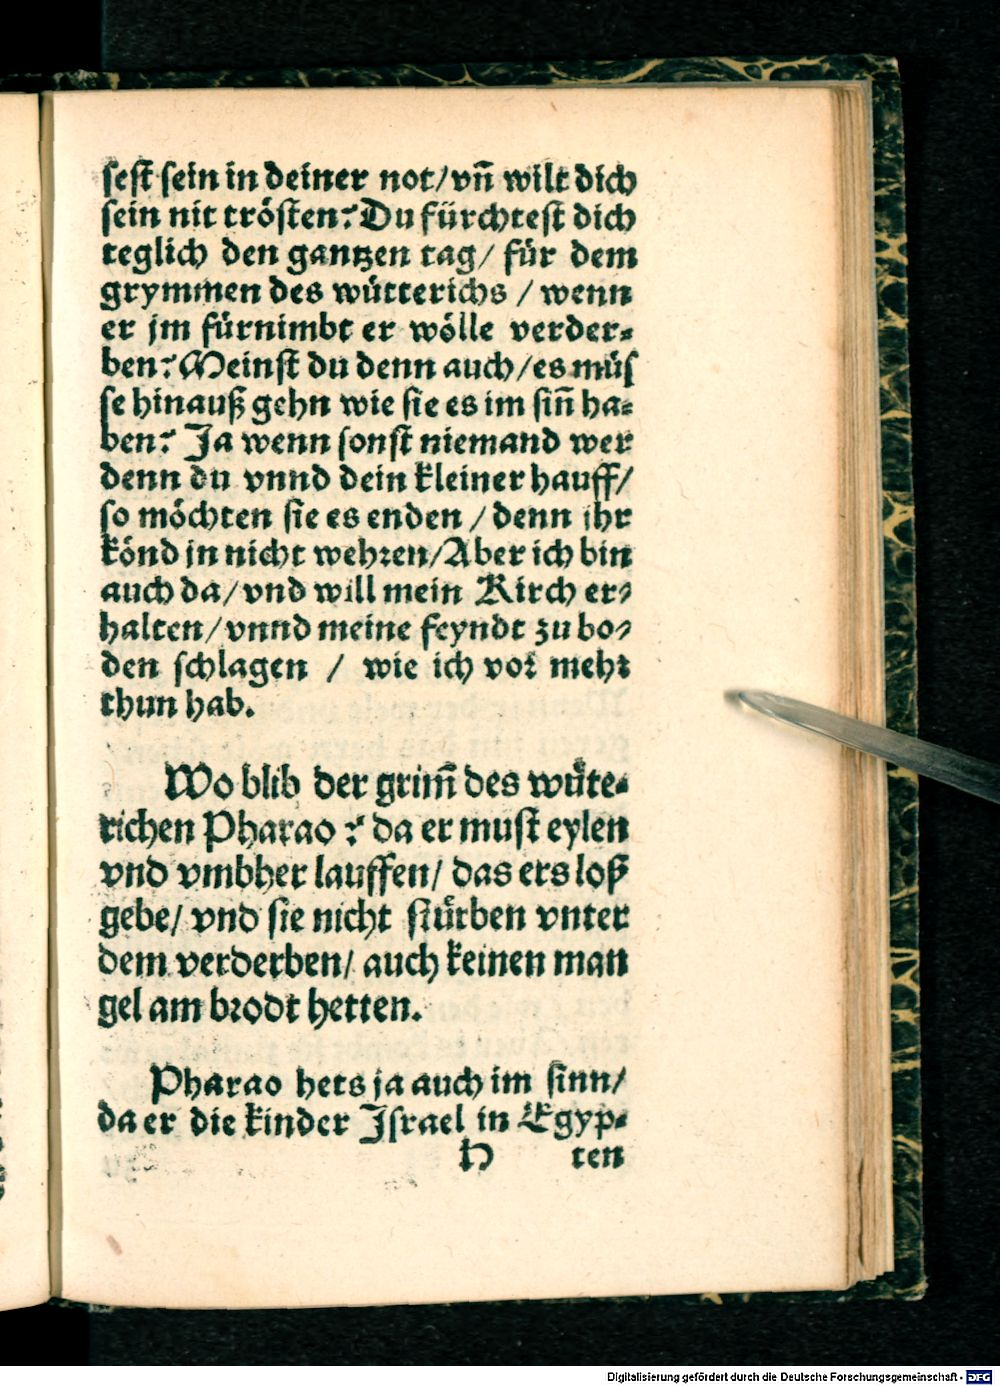 sest sein in deiner not/vñ wilt dich
sein nit trösten? Du fürchtest dich
teglich den gantzen tag/ für dem
grymmen des wütterichs / wenn
er jm fürnimbt er wölle verder-
ben? Meinst du denn auch/es müs
se hinauß gehn wie sie es im siñ ha-
ben? Ja wenn sonst niemand wer
denn du vnnd dein kleiner hauff/
so möchten sie es enden / denn ihr
könd jn nicht wehren/Aber ich bin
auch da/vnd will mein Kirch er-
halten/vnnd meine feyndt zu bo-
den schlagen / wie ich vor mehr
thun hab.
Wo blib der grim̃ des wüte-
richen Pharao? da er must eylen
vnd vmbher lauffen/ das ers loß
gebe/ vnd sie nicht stürben vnter
dem verderben/ auch keinen man
gel am brodt hetten.
Pharao hets ja auch im sinn/
da er die kinder Israel in Egyp-
H ten
Digitalisierung gefördert durch die Deutsche Forschungsgemeinschaft - DFG